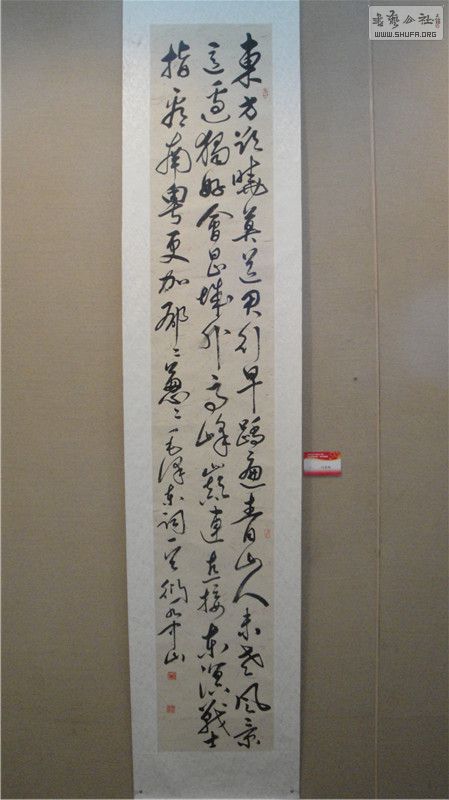 東方欲曉莫道君行早踏遍青山人未老風景
這邊獨好會昌城外高峰巔連直接東溟戰士
指看南粤更加鬱〻蔥〻毛澤東詞一首
書藝公社
WWW.SHUFA.ORG